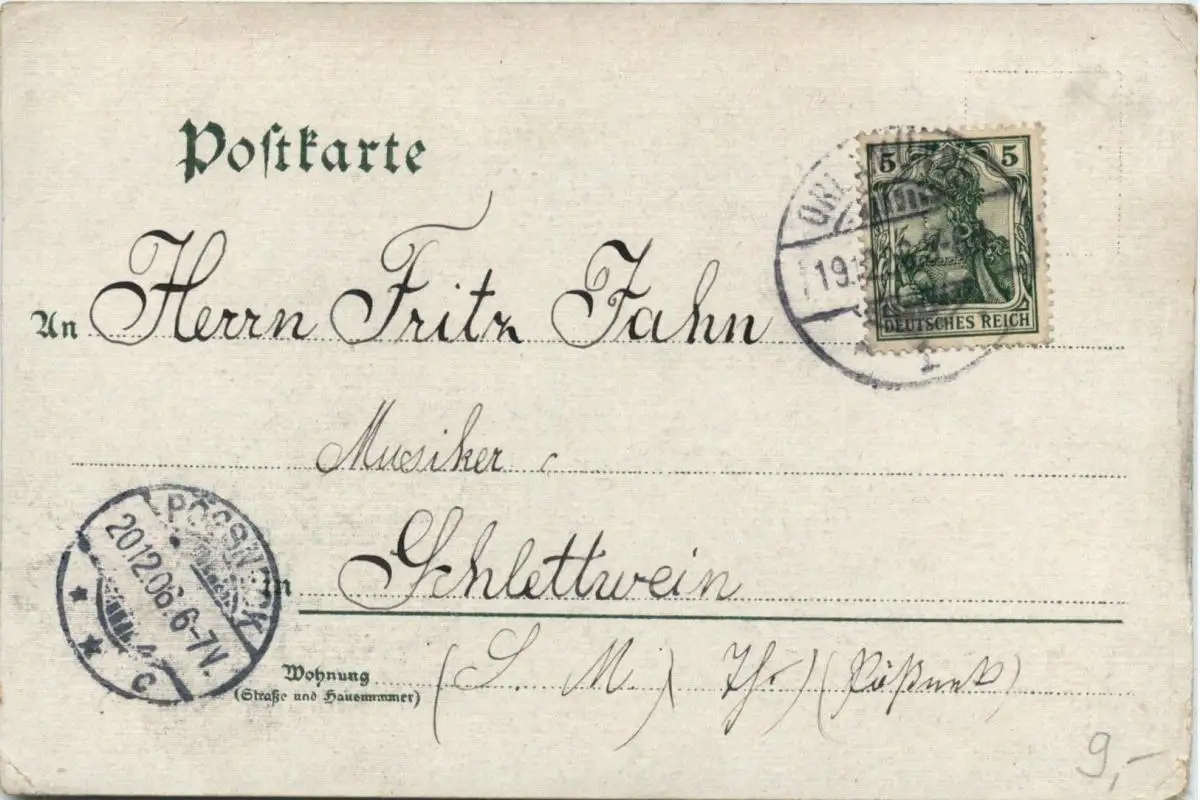 Postkarte
5 5
DEUTSCHES REICH
19.12
1
An Herrn Fritz Jahn
Musiker
in Schlettwein
Wohnung (S. M.) Th.) (Pößneck)
(Straße und Hausnummer)
PÖSSNECK
20.12.06.6-7V.
* * C
9,-